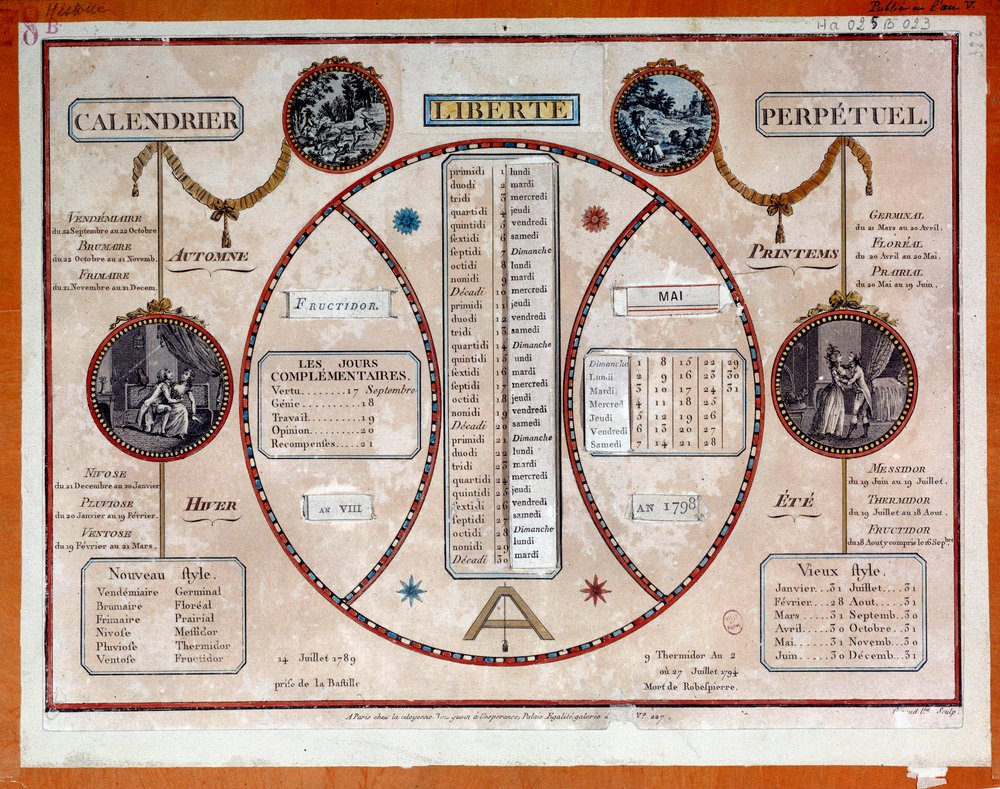 Histoire
Publié en l'an V.
8 B
Ha 025 B 023
222
CALENDRIER
LIBERTE
PERPÉTUEL.
VENDÉMIAIRE
du 22 Septembre au 22 Octobre
BRUMAIRE
du 22 Octobre au 21 Novemb.
FRIMAIRE
du 21 Novembre au 21 Decem.
AUTOMNE
NIVOSE
du 21 Decembre au 20 Janvier
PLUVIOSE
du 20 Janvier au 19 Février.
VENTOSE
du 19 Février au 21 Mars.
HIVER
Nouveau ſtyle.
Vendémiaire Germinal
Brumaire Floréal
Frimaire Prairial
Nivose Meſſidor
Pluviose Thermidor
Ventose Fructidor
FRUCTIDOR.
LES JOURS
COMPLÉMENTAIRES.
Vertu.......17 Septembre
Génie........18
Travail......19
Opinion.....20
Recompenſes.....21
AN VIII.
primidi 1 lundi
duodi 2 mardi
tridi 3 mercredi
quartidi 4 jeudi
quintidi 5 vendredi
ſextidi 6 samedi
ſeptidi 7 Dimanche
octidi 8 lundi
nonidi 9 mardi
Décadi 10 mercredi
primidi 11 jeudi
duodi 12 vendredi
tridi 13 samedi
quartidi 14 Dimanche
quintidi 15 undi
ſextidi 16 mardi
ſeptidi 17 mercredi
octidi 18 jeudi
nonidi 19 vendredi
Décadi 20 samedi
primidi 21 Dimanche
duodi 22 lundi
tridi 23 mardi
quartidi 24 mercredi
quintidi 25 jeudi
ſextidi 26 vendredi
ſeptidi 27 samedi
octidi 28 Dimanche
nonidi 29 lundi
Décadi 30 mardi
MAI
Dimanche 1 8 15 22 29
Lundi 2 9 16 23 30
Mardi 3 10 17 24 31
Mercred 4 11 18 25
Jeudi 5 12 19 26
Vendredi 6 13 20 27
Samedi 7 14 21 28
AN 1798
PRINTEMS
GERMINAL
du 21 Mars au 20 Avril.
FLORÉAL
du 20 Avril au 20 Mai.
PRAIRIAL
du 20 Mai au 19 Juin.
ÉTÉ
MESSIDOR
du 19 Juin au 19 Juillet.
THERMIDOR
du 19 Juillet au 18 Aout.
FRUCTIDOR
du 18 Aout y compris le 16 Sepbre
Vieux ſtyle.
Janvier...31 Juillet....31
Février....28 Aout.....31
Mars.....31 Septemb..30
Avril.....30 Octobre..31
Mai......31 Novemb..30
Juin.....30 Décemb..31
14 Juillet 1789
priſe de la Baſtille
9 Thermidor An 2
où 27 Juillet 1794
Mort de Robeſpierre.
A Paris chez la citoyenne à l'esperance, Palais Egalité, galerie No. 227.
Sculp.